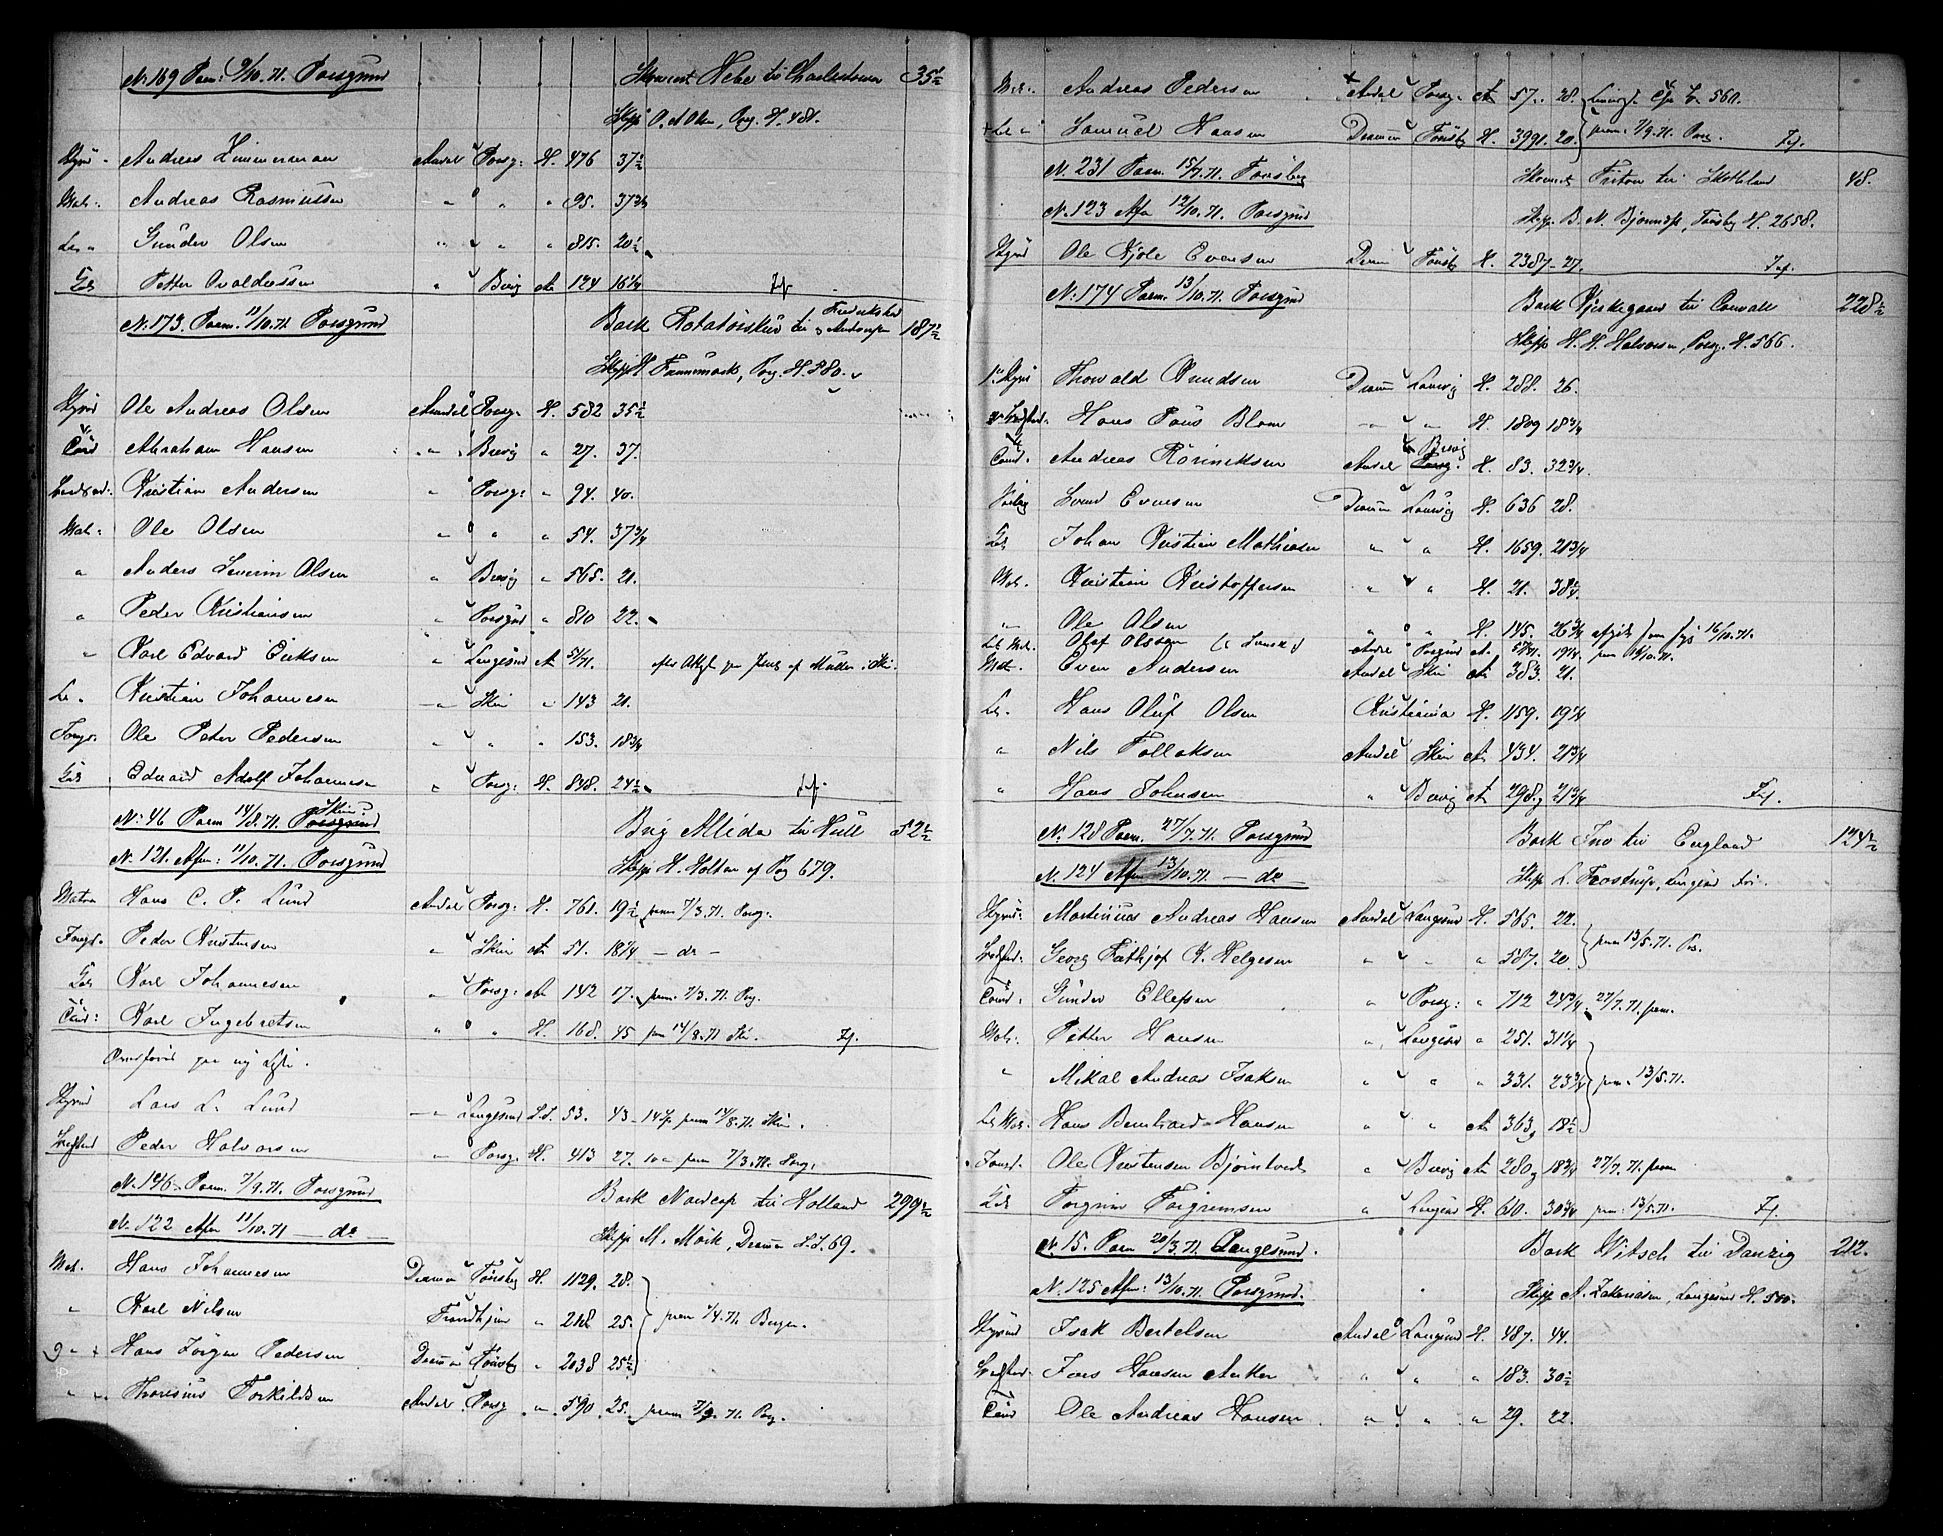 N. 169 Paam. 9/10.71. Porsgrund Skonnert Hebe til Charlestown 35½
Skipp. O. A. Olsen, Porsg. H. 481.
Styrd Andreas Zimmerman Arndal Porsg: H. 476 37½
Mat: Andreas Rasmussen " " " 95. 37¾
Le " Gunder Olsen " " " 815. 20½
Gut Petter Valdersen " Brevig A 124 16¼ Fr.
N. 173. Paam. 11/10.71 Porsgrund Bark Rotatorskin til Fredrikstad & Antwerpen 187½
Skipp H. Fannemark, Porg. H. 580.
Styrd Ole Andreas Olsen Arendal Porsg: H. 582 35½
Cond Abraham Hansen " Brevig " 27. 37.
Kristian Andersen " Porsg: " 94. 40.
Mat: Ole Olsen " " " 54. 37¾
" Anders Severin Olsen " Brevig " 565. 21.
" Peder Kristiansen " Porsgrd " 810 22.
" Karl Edvard Eriksen " Langesund A 5/71.
Le. Kristian Johannesen " Skien " 143 21.
Jungm. Ole Peter Pedersen " " " 153. 18¾
Gut Edvard Adolf Johannesen " Porsg: H. 848. 24½ Fr.
N: 46 Paam 14/8.71. Skien Brig Alida til Hull 52½
N. 121. Afm: 11/10.71. Porsgrund Skipp H. Holten af Porg 679.
Matros Hans C. P. Lund Arndal Porsg: H. 761. 19½ paam 7/3.71. Porsg:
Jungm. Peder Kristensen " Skien A 51. 18¼ — do —
Gut Karl Johannesen " Porsg: A 142 17. paam. 7/3.71. Porg.
Cond: Karl Ingebretsen " " H. 168. 45 paam 14/8.71 Ski. Fr.
Overført paa ny Liste.
Styrd Lars L. Lund " Langesund L.L. 53. 43 - paam 14/8.71. Skien.
Peder Halvorsen " Porsg: H. 413 27. paam 7/3.71. Porsg:
N. 146. Paam. 7/9.71. Porsgrund Bark Nordcap til Holland 299½
N. 122 Afm 11/10.71 — do — Skipp M. Mørk, Dramen L.L. 69.
Mat. Hans Johannesen Dramen Tønsbg H. 1129. 28.
" Karl Nilsen Trondhjem " 218 25. paam 1/4.71. Bergen.
" Hans Jørgen Pedersen Dramen Tønsbg " 2038 25½
" Thoresius Torkildsen Arndal Porsg " 590. 25. paam 7/9.71. Porg.
Mat. Andreas Pedersen Arndal Porsg. A 57. 28.
Le " Samuel Hansen Dramen Tønsbg H. 3991. 20. paam: 7/9.71. Porsg Fr.
N. 231 Paam. 15/7.71. Tønsberg Skonnert Triton til Skotland 48.
N. 123 Afm 12/10.71. Porsgrund Skipp. B. N. Bjønnes, Tønsbg H. 2658.
Styrd Ole Kjøle Evensen Dram Tønsb H. 2387 - 27. Fr.
N. 174 Paam. 13/10.71. Porsgrund Bark Kjerkegaard til Cornvall 228½
Skipp H. H. Halvorsen, Porsg. H. 566.
1ste Styrd Thorvald Knudsen Dramn Laurvig H. 288. 26.
Hans Paus Blom " " H. 1809 18¾
Cond. Andreas Rørmiksen Arndal Brevig H. 83. 32¾
Svend Evensen Dramn Laurvig H. 636 28.
Gut Johan Kristian Mathiesen " " H. 1659. 21¾
Mat. Kristian Kristoffersen " " H. 21. 38¼
" Ole Olsen " " H. 145. 26¾ afgik 16/10.71.
Let Mat. Olaf Olssen (Svensk) Arndl Porsgrd A 5/71. 19¼ paam 16/10.71.
Mat. Even Andersen Arndal Skien A 383. 21.
Let. Hans Oluf Olsen Kristiania H. 1159. 19¼
" Nils Tollaksen Arndal Skien A 434. 21¾
" Hans Johnsen " Brevig A 298. 21¾ Fr.
N. 128 Paam. 27/7.71. Porsgrund Bark Ino til England 124½
N. 124 Afm 13/10.71. — do — Skipp L. Frostrup, Langesund
Styrd: Martinius Andreas Hansen Arndal Langesund H. 565. 22.
Georg Fritjof K. Helgesen " " " 587. 20. paam 13/5.71. Por.
Cond: Gunder Ellefsen " Porsg: " 712 24¾ 27/7.71. paam.
Mat: Petter Hansen " Langesund " 251. 31¼
" Mikal Andreas Isaksen " " " 331. 23¾ paam: 13/5.71.
Let Mat. Hans Bernhard Hansen " " A 363. 18½
Jungm. Ole Kristensen Bjørntvedt " Brevig A 280 18¾ 27/7.71. paam
Gut Torgrim Torgrimsen " Langesd H. 610. 30¾ paam: 13/5.71. Fr.
N. 15. Paam 20/3.71. Langesund. Bark Witsch til Danzig 212.
N. 125 Afm: 13/10.71. Porsgrund. Skipp A. Zakariasen, Langesund H. 550.
Styrd Isak Bertelsen Arndal Langesund H. 487. 44.
Jens Hansen Anker " " " 183. 30½
Cond Ole Andreas Hansen " " " 29. 22.